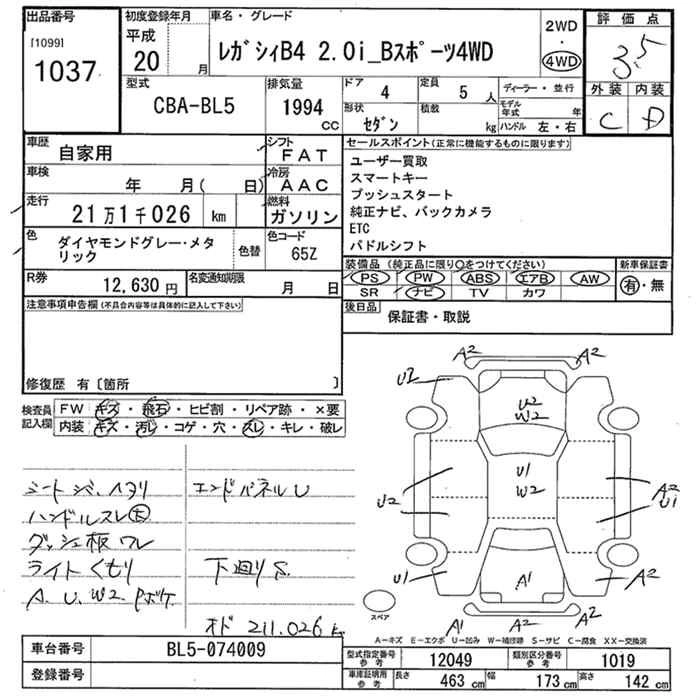 出品番号
[1099]
1037
初度登録年月
平成
20
月
車名・グレード
レガシィB4 2.0i_Bスポーツ4WD
2WD
・
4WD
評価点
3.5
外装 内装
C D
型式
CBA-BL5
排気量
1994
CC
ドア
4
定員
5 人
形状
セダン
積載
kg
ディーラー・並行
モデル年式
年
ハンドル 左・右
車歴
自家用
シフト
FAT
車検
年 月( 日)
冷房
AAC
走行
21万1千026 km
燃料
ガソリン
色
ダイヤモンドグレー・メタ
リック
色替
色コード
65Z
R券
12,630 円
名変通知期限
月 日
セールスポイント(正常に機能するものに限ります)
ユーザー買取
スマートキー
プッシュスタート
純正ナビ、バックカメラ
ETC
パドルシフト
装備品(純正品に限り○をつけてください)
PS PW ABS エアB AW
SR ナビ TV カワ
新車保証書
有・無
後日品
保証書・取説
注意事項申告欄(不具合内容等は具体的に記入して下さい)
修復歴 有〔箇所 〕
検査員
記入欄
FW キズ・飛石・ヒビ割・リペア跡・×要
内装 キズ・汚レ・コゲ・穴・スレ・キレ・破レ
シートシミ、ヘタリ
ハンドルスレ大
ダッシュ板ワレ
ライトくもり
A.U.W2.Pボケ
エンドパネルU
下廻りS
オド 211.026 km
A2
A2
U2
U2
W2
U1
W2
U2
A2
U1
U1
A1
A2
A1
A2
スペア
A-キズ E-エクボ U-凹み W-補修跡 S-サビ C-腐食 XX-交換済
車台番号
BL5-074009
登録番号
型式指定番号
参考
12049
類別区分番号
参考
1019
車庫証明用
参考
長さ
463 cm
幅
173 cm
高さ
142 cm